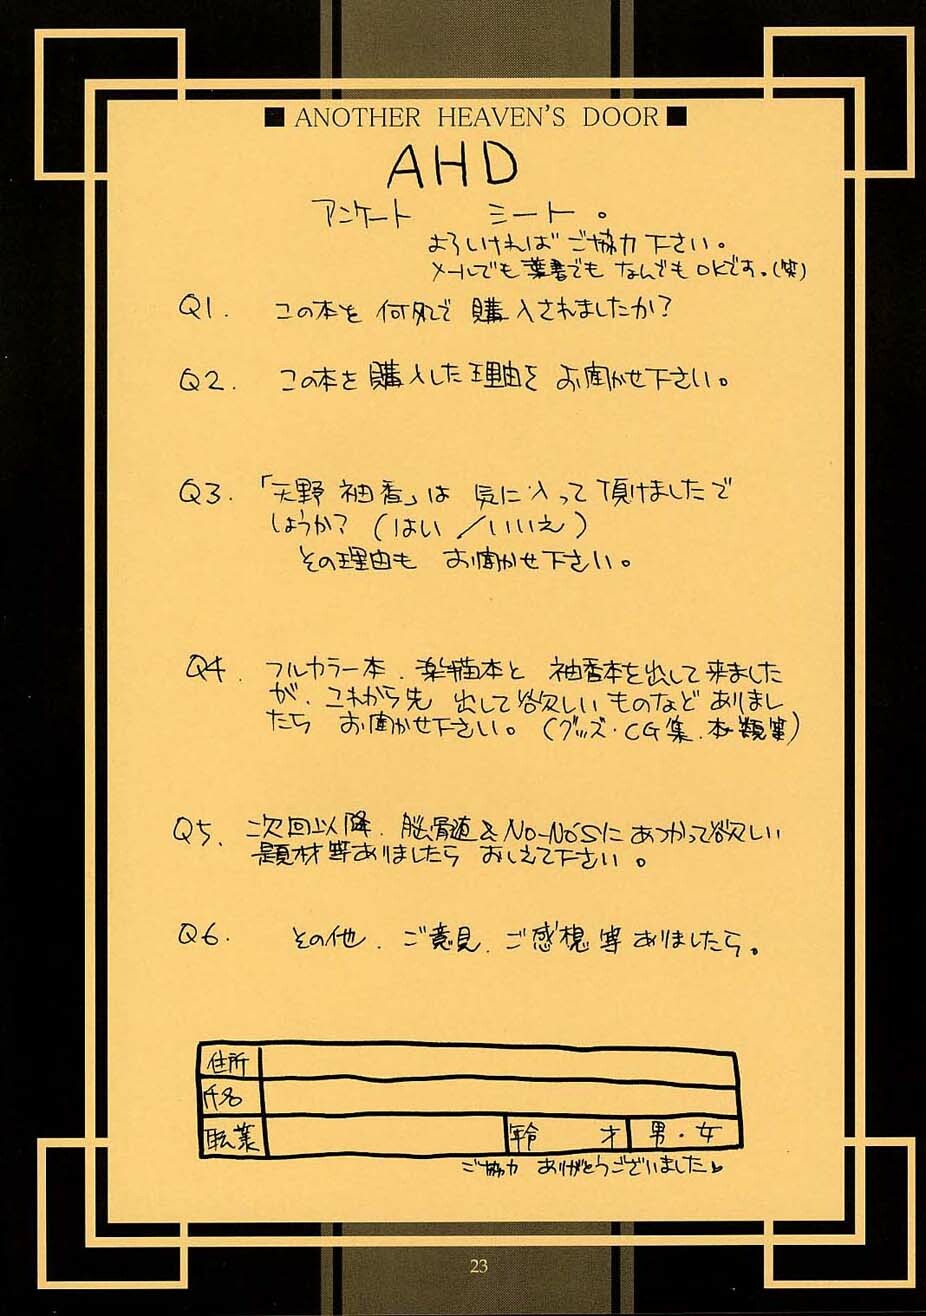 ■ ANOTHER HEAVEN'S DOOR ■
AHD
アンケート シート。
よろしければ ご協力 下さい。
メールでも 葉書でも なんでも OKです。(笑)
Q1. この本を 何処で 購入されましたか?
Q2. この本を 購入した 理由を お聞かせ下さい。
Q3. 「天野 袖香」は 気に入って 頂けましたで
しょうか? (はい /いいえ)
その理由も お聞かせ下さい。
Q4. フルカラー本、楽描本と 袖香本を出して来ました
が、これから先 出して欲しい ものなど ありまし
たら お聞かせ下さい。 (グッズ・CG集、本類等)
Q5. 次回以降、脳骨随&No-No'Sに あつかって欲しい
題材等ありましたら おしえて下さい。
Q6. その他、ご意見、ご感想等 ありましたら。
住所
氏名
職業 年令 才 男・女
ご協力 ありがとうございました
23